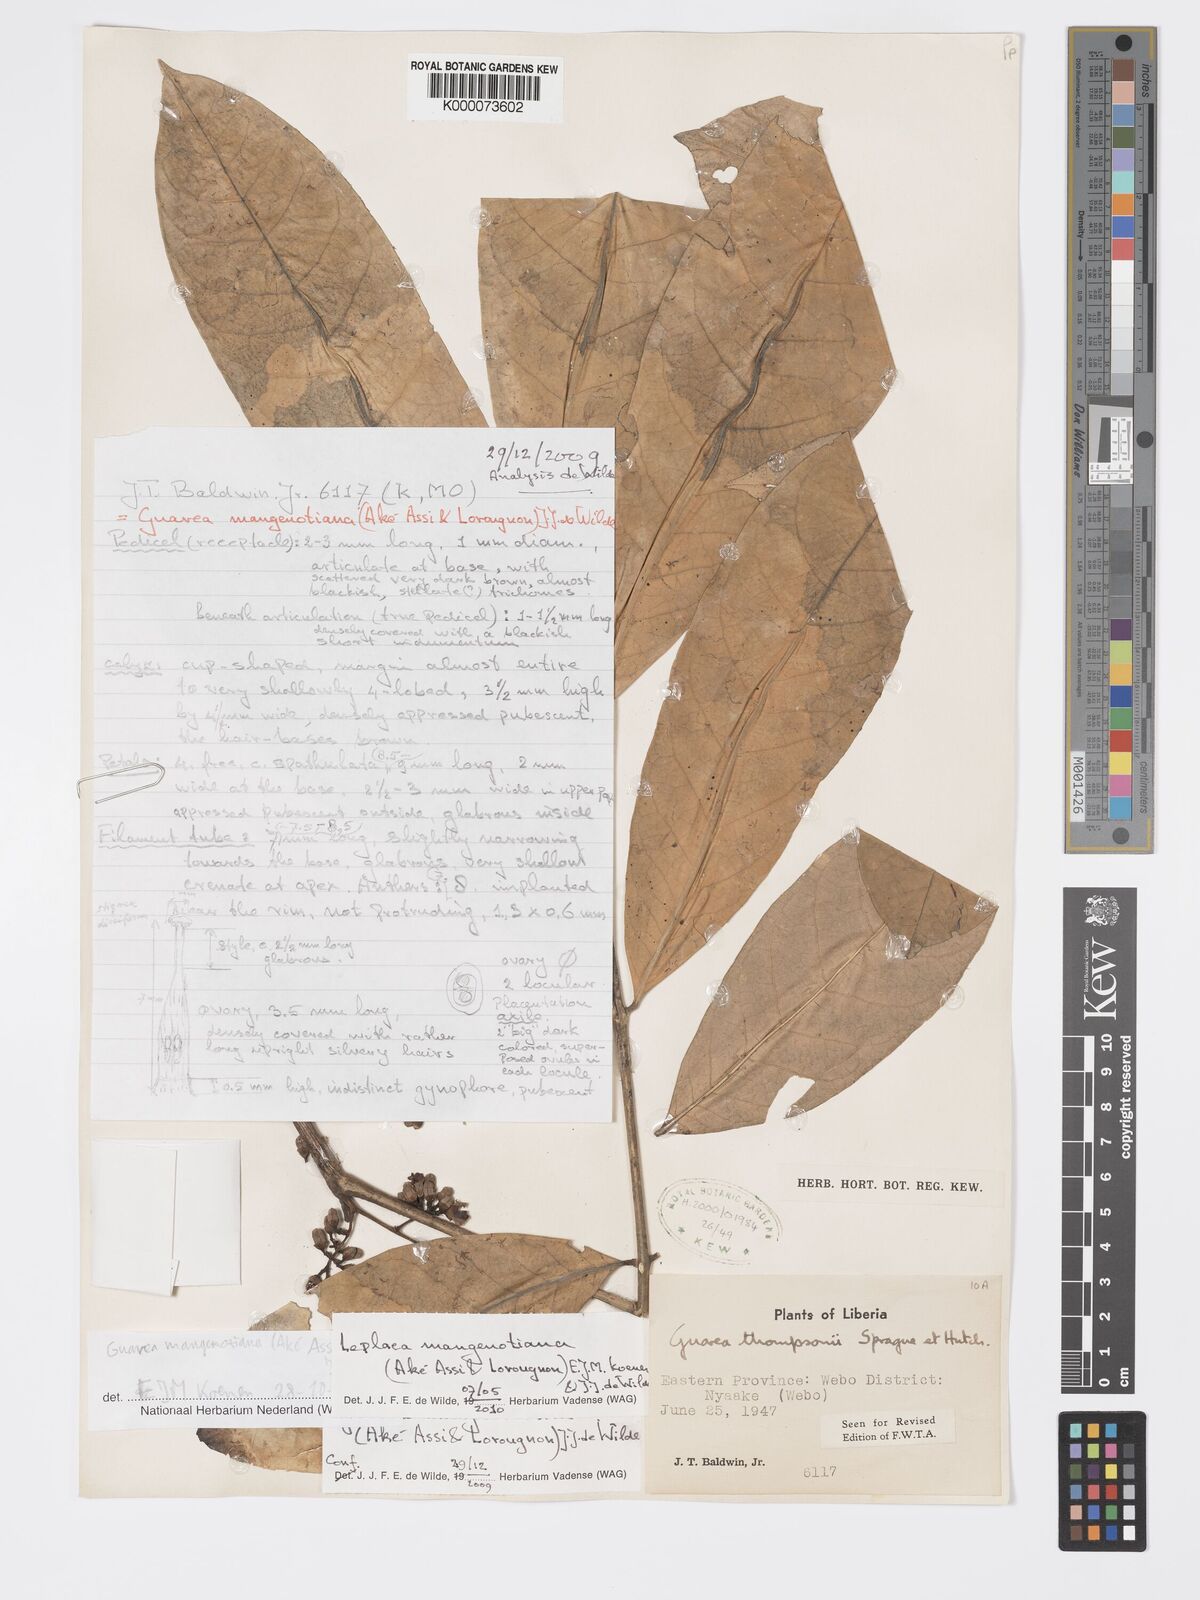 ROYAL BOTANIC GARDENS KEW
K000073602
29/12/2009
Analysis de Wilde
J.T. Baldwin Jr. 6117 (K, MO)
= Guarea mangenotiana (Aké Assi & Lorougnon) J.J. de Wilde
Pedicel (receptacle): 2-3 mm long, 1 mm diam.,
articulate at base, with
scattered very dark brown, almost
blackish, stellate(?) trichomes.
beneath articulation (true pedicel): 1-1½ mm long
densely covered with a blackish
short indumentum
calyx: cup-shaped, margin almost entire
to very shallowly 4-lobed, 3½ mm high
by 4½ mm wide, densely appressed pubescent,
the hair-bases brown
Petals: 4, free, c. spathulate, (8.5-) 9 mm long, 2 mm
wide at the base, 2½-3 mm wide in upper
appressed pubescent outside, glabrous inside
Filament tube: 7 mm long, slightly narrowing
towards the base, glabrous, very shallow
crenate at apex. Anthers 8, implanted
near the rim, not protruding, 1,3 x 0,6 mm
style, c. 2½ mm long
glabrous.
ovary
2 locular
Placentation
axile.
2 "big" dark
colored, super-
posed ovules in
each locule.
ovary, 3.5 mm long,
densely covered with rather
long upright silvery hairs
0.5 mm high, indistinct gynophore, pubescent
HERB. HORT. BOT. REG. KEW.
ROYAL BOTANIC GARDENS
H.2000/01984
26/49
KEW
10A
Plants of Liberia
Guarea thompsonii Sprague et Hutch.
Eastern Province: Webo District:
Nyaake (Webo)
June 25, 1947
Seen for Revised
Edition of F.W.T.A.
J. T. Baldwin, Jr.
6117
Guarea mangenotiana (Aké Ass
det. EJM Koenen 28.10
Nationaal Herbarium Nederland (W
Leplaea mangenotiana
(Aké Assi & Lorougnon) E.J.M. Koenen
& J.J. de Wilde
07/05
Det. J. J. F. E. de Wilde, 19 2010 Herbarium Vadense (WAG)
(Aké Assi & Lorougnon) J.J. de Wilde
Conf.
29/12
Det. J. J. F. E. de Wilde, 19 2009 Herbarium Vadense (WAG)
inches
Density
Don Williams
M001426
Royal Botanic Gardens
Kew
0 1 2 3 4 5 6 7 8 9 10
copyright reserved
cm